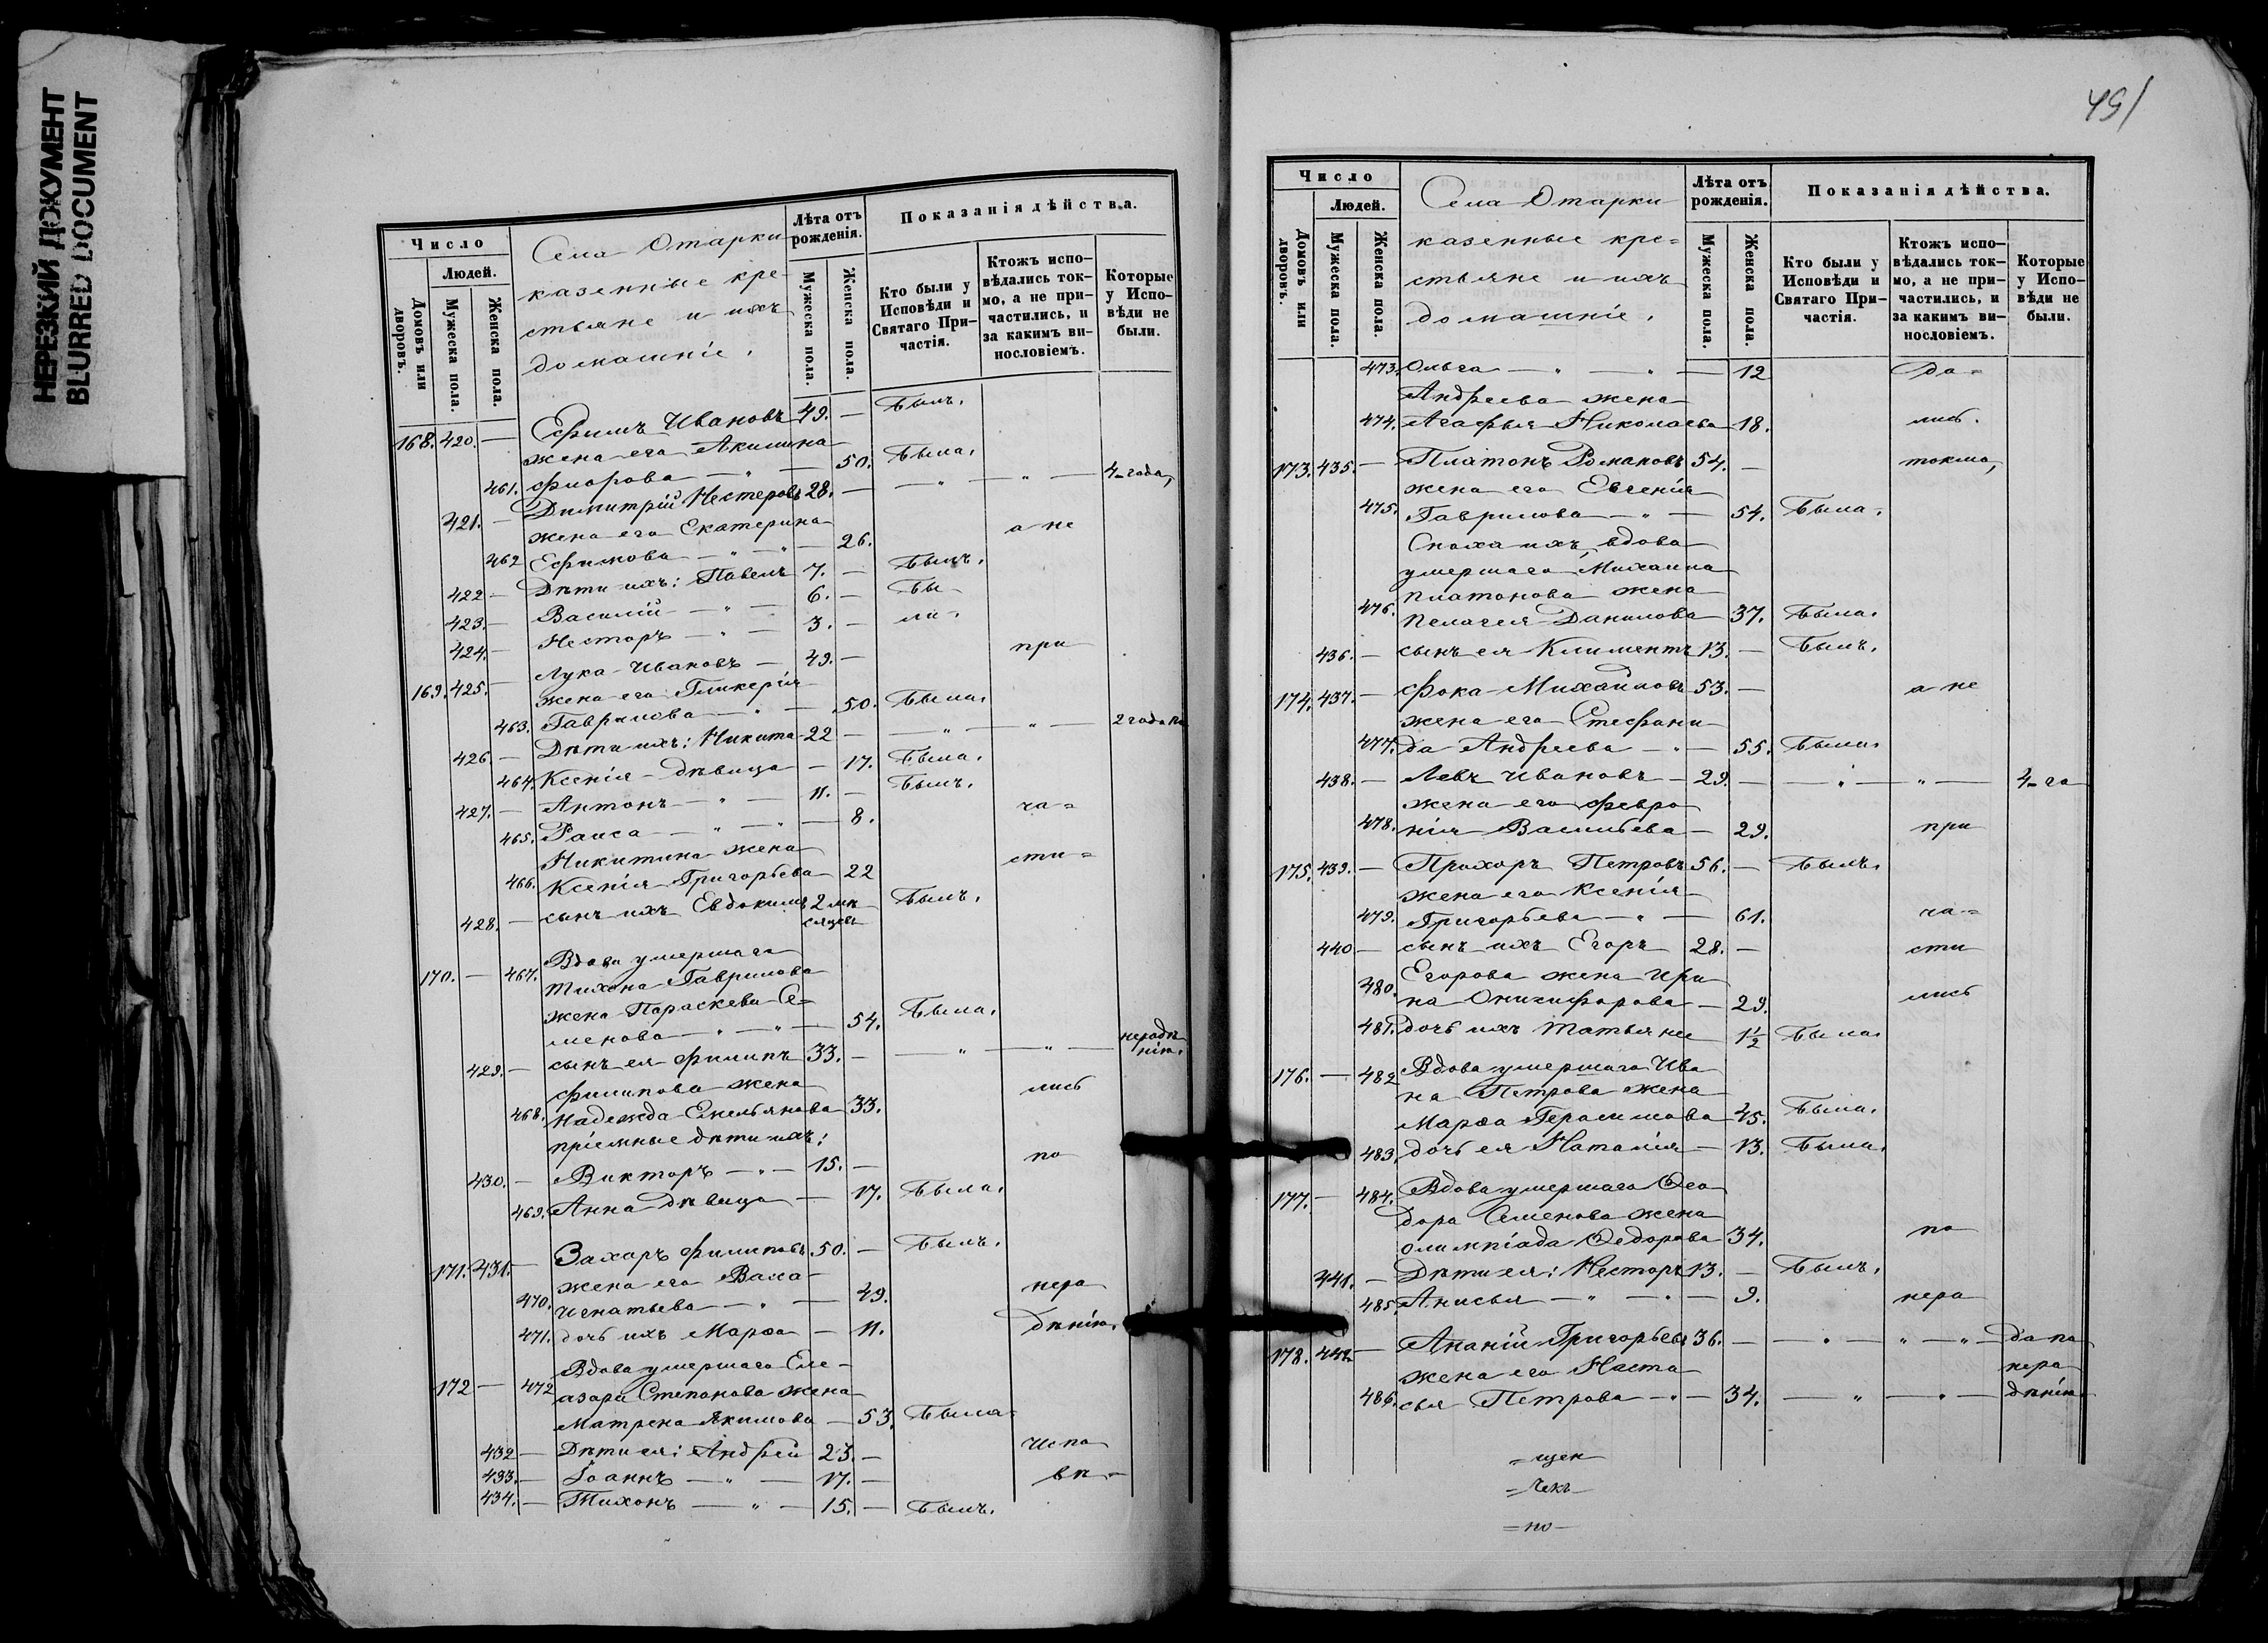 НЕРЕЗКИЙ ДОКУМЕНТ
BLURRED DOCUMENT
Число
Людей.
Домовъ или дворовъ.
Мужеска пола.
Женска пола.
Села Отарки
казенные кре-
стьяне и ихъ
домашніе.
Лѣта отъ рожденія.
Мужеска пола.
Женска пола.
Показанія дѣйства.
Кто были у Исповѣди и Святаго Причастія.
Ктожъ исповѣдались токмо, а не причастились, и за какимъ винословіемъ.
Которые у Исповѣди не были.
168. 420. — Ефимъ Ивановъ 49. — Былъ.
жена его Акилина
461. Фиорова — " — 50. Была.
421. — Димитрій Нестеровъ 28. — — " — " — 4-года,
жена его Екатерина а не
462 Ефимова — " — " — 26.
422 — Дѣти ихъ: Павелъ 7. — Былъ.
423. — Василій — " — 6. — Бы-
424. — Несторъ — " — 3. — ли.
169. 425. — Лука Ивановъ — 49. — при
жена его Гликерія
463. Гаврилова — " — 50. Была.
426. — Дѣти ихъ: Никита 22 — — " — " — 2 года по
464. Ксенія-дѣвица — 17. Была.
427. — Антонъ — " — 11. — Былъ.
465. Раиса — " — " — 8. ча=
Никитина жена
466. Ксенія Григорьева 22 сти=
428. — сынъ ихъ Евдокимъ 2 мѣсяцевъ Былъ.
170. — 467. Вдова умершаго
Тихона Гаврилова
жена Параскева Се=
менова — " — " — 54. Была.
429. — сынъ ея Филипъ 33. — — " — " — нерадѣнію.
Филипова жена лись
468. Надежда Емельянова 33.
пріемные дѣти ихъ:
430. — Викторъ — " — 15. — по
469. Анна дѣвица — 17. Была.
171. 431. — Захаръ Филиповъ 50. — Былъ.
жена его Васса
470. Игнатьева — " — 49. нера
471. дочь ихъ Марѳа — 11. дѣнію.
Вдова умершаго Еле-
172 — 472 азара Степанова жена
Матрена Якимова — 53. Была.
432 — Дѣти ея: Андрей 23. — Испо
433. — Іоаннъ — " — 17. — вѣ-
434. — Тихонъ — " — 15. — Былъ.
451
Число
Людей.
Домовъ или дворовъ.
Мужеска пола.
Женска пола.
Села Отарки
казенные кре=
стьяне и ихъ
домашніе.
Лѣта отъ рожденія.
Мужеска пола.
Женска пола.
Показанія дѣйства.
Кто были у Исповѣди и Святаго Причастія.
Ктожъ исповѣдались токмо, а не причастились, и за какимъ винословіемъ.
Которые у Исповѣди не были.
473. Ольга — " — " — 12 да=
Андреева жена
474. Агафья Николаева 18. лись.
173. 435. — Платонъ Романовъ 54. — токмо,
жена его Евгенія
475. Гаврилова — " — 54. Была.
Сноха ихъ, вдова
умершаго Михаила
Платонова жена
476. Пелагея Данилова 37. Была.
436. — сынъ ея Климентъ 13. — Былъ.
174. 437. — Фока Михайловъ 53. — а не
жена его Стефани
477. да Андреева — " — 55. Была.
438. — Левъ Ивановъ — 29. — — " — " — 4-го
жена его Февро
478. нія Васильева — 29. при
175. 439. — Прохоръ Петровъ 56. — Былъ.
жена его Ксенія
479. Григорьева — " — 61. ча=
440 — сынъ ихъ Егоръ 28. — сти
Егорова жена Ири
480. на Онисифорова — 29. лись
481. дочь ихъ Татьяна 1½ Была.
176. — 482 Вдова умершаго Ива
на Петрова жена
Марѳа Герасимова 45. Была.
483. дочь ея Наталія — 13. Была.
177. — 484. Вдова умершаго Ѳео
дора Семенова жена
Олимпіада Ѳедорова 34. по
441. — Дѣти ея: Несторъ 13. — Былъ.
485. Анисья — " — " — 9. нера
178. 442 — Ананій Григорьевъ 36. — — " — " — " — да по
жена его Наста нера
486. сья Петрова — " — 34. — " — " — дѣнію
=щен
=чекъ
=по=